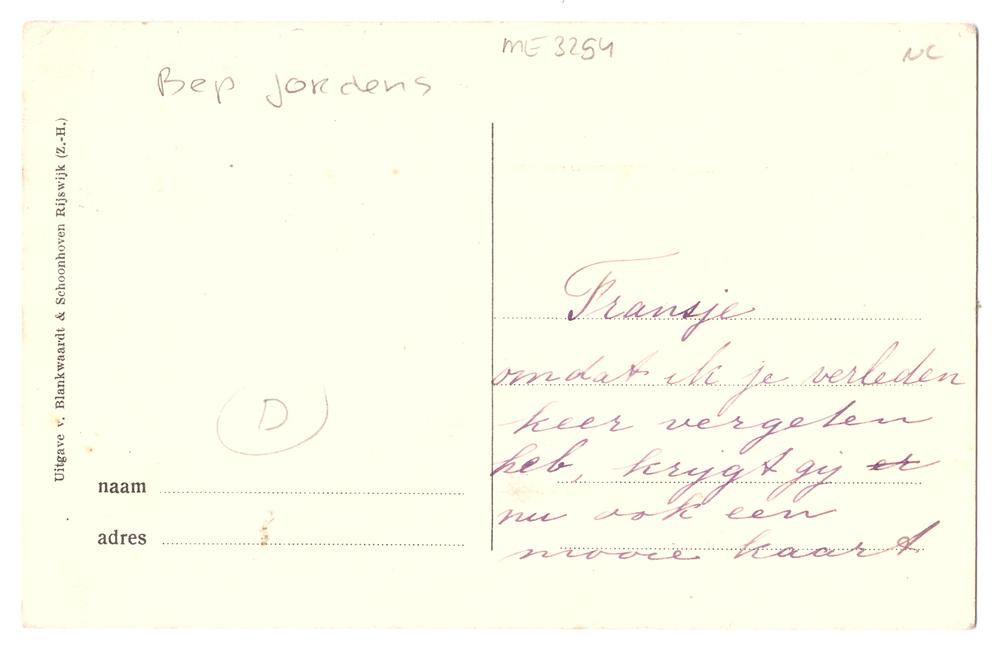 ME 3254
NC
Bep Jordens
Uitgave v. Blankwaardt & Schoonhoven Rijswijk (Z.-H.)
D
naam
adres
Fransje
omdat ik je verleden
keer vergeten
heb, krijgt gij er
nu ook een
mooie kaart